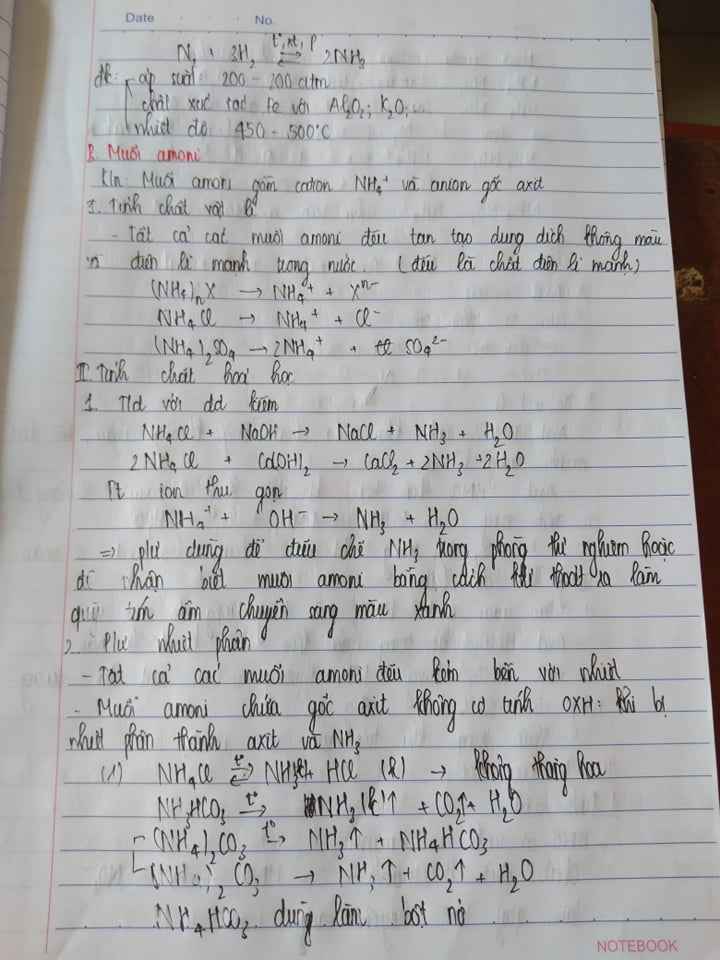 Date No.
t°, xt, p
N2 + 3H2 ⇌ 2NH3
đk: áp suất 200 - 300 atm
chất xúc tác Fe với Al2O3; K2O;
nhiệt độ 450 - 500°C
B. Muối amoni
Kn: Muối amoni gồm cation NH4+ và anion gốc axit
I. Tính chất vật lí
- Tất cả các muối amoni đều tan tạo dung dịch không màu
điện li mạnh trong nước. (đều là chất điện li mạnh)
(NH4)nX → NH4+ + Xn-
NH4Cl → NH4+ + Cl-
(NH4)2SO4 → 2NH4+ + SO42-
II. Tính chất hoá học
1. T/d với dd kiềm
NH4Cl + NaOH → NaCl + NH3 + H2O
2NH4Cl + Ca(OH)2 → CaCl2 + 2NH3 + 2H2O
Pt ion thu gọn
NH4+ + OH- → NH3 + H2O
=> pư dùng để điều chế NH3 trong phòng thí nghiệm hoặc
để nhận biết muối amoni bằng cách khí thoát ra làm
quỳ tím ẩm chuyển sang màu xanh
2. Pư nhiệt phân
- Tất cả các muối amoni đều kém bền với nhiệt
- Muối amoni chứa gốc axit không có tính OXH: khi bị
nhiệt phân thành axit và NH3
(1) NH4Cl ⇌ t° NH3(k) + HCl (k) → không thăng hoa
NH4HCO3 t°→ NH3(k)↑ + CO2↑ + H2O
(NH4)2CO3 t°→ NH3↑ + NH4HCO3
(NH4)2CO3 → NH3↑ + CO2↑ + H2O
NH4HCO3 dùng làm bột nở
NOTEBOOK